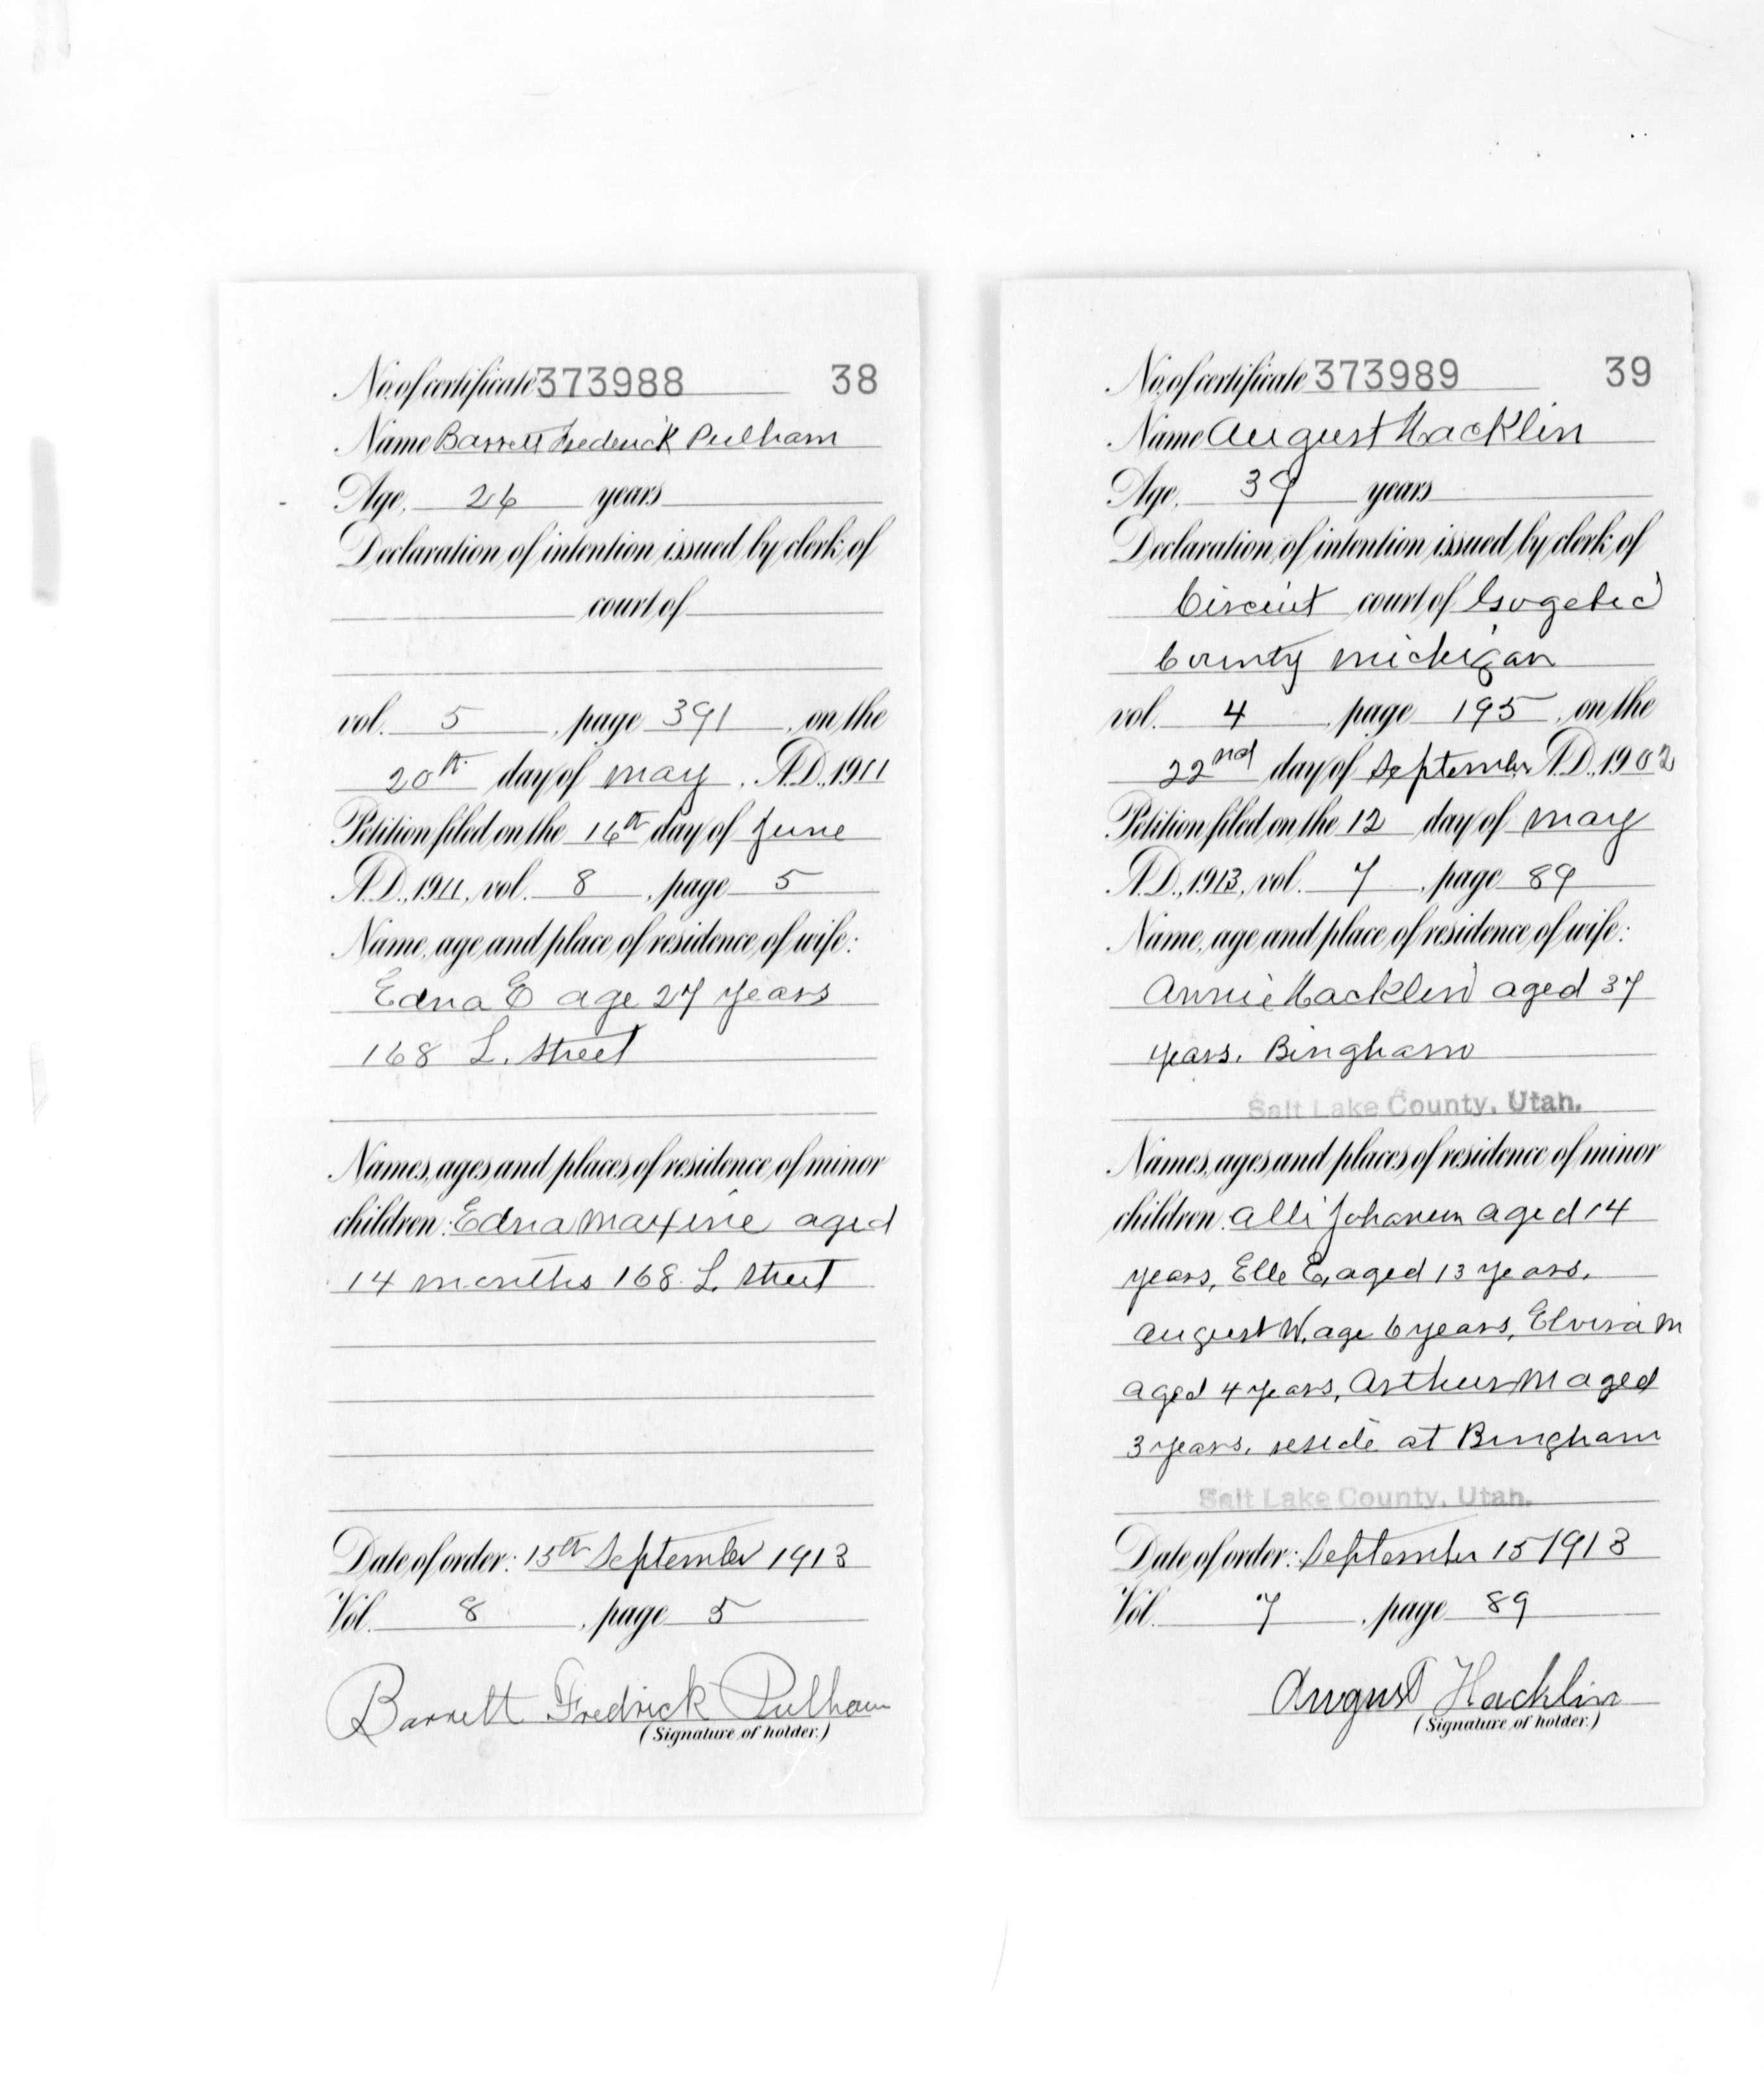 No. of certificate 373988 38
Name Barrett Frederick Pulham
Age, 26 years
Declaration of intention issued by clerk of
court of
vol. 5, page 391, on the
20th day of May, A.D., 1911
Petition filed on the 16th day of June
A.D., 1911, vol. 8, page 5
Name, age and place of residence of wife:
Edna E age 27 years
168 L. Street
Names, ages and places of residence of minor
children: Edna Maxine aged
14 months 168 L. Street
Date of order: 15th September 1913
Vol. 8, page 5
Barrett Fredrick Pulham
(Signature of holder.)
No. of certificate 373989 39
Name August Hacklin
Age, 39 years
Declaration of intention issued by clerk of
Circuit court of Gogebic
County Michigan
vol. 4, page 195, on the
22nd day of September A.D., 1902
Petition filed on the 12 day of May
A.D., 1913, vol. 7, page 89
Name, age and place of residence of wife:
Annie Hacklin aged 37
years. Bingham
Salt Lake County, Utah.
Names, ages and places of residence of minor
children: Alli aged 14
years, Elle E, aged 13 years,
August W, age 6 years, Elvira M
aged 4 years, Arthur M aged
3 years. reside at Bingham
Salt Lake County, Utah.
Date of order: September 15 1913
Vol. 7, page 89
August Hacklin
(Signature of holder.)